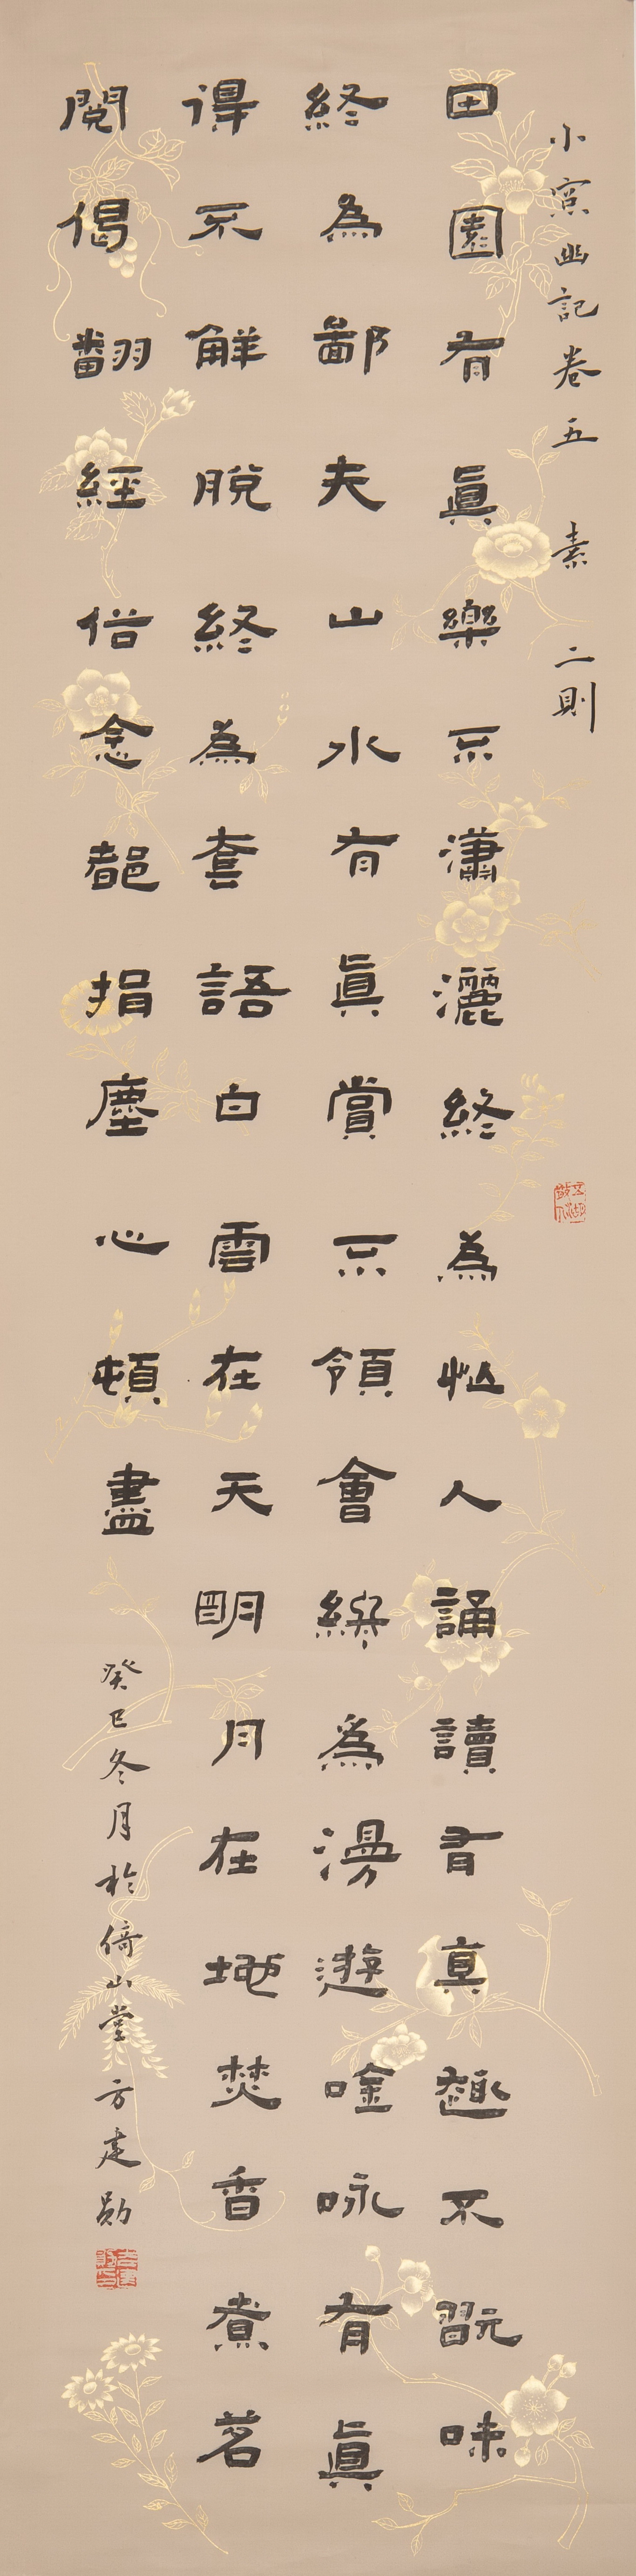 小窗幽記卷五 素 二則
田園有眞樂不瀟灑終為忙人誦讀有真趣不翫味
終為鄙夫山水有眞賞不領會終為漫遊唫咏有眞
得不解脫終為套語白雲在天明月在地焚香煮茗
閱偈翻經俗念都捐塵心頓盡
癸巳冬月於倚山堂方建勛